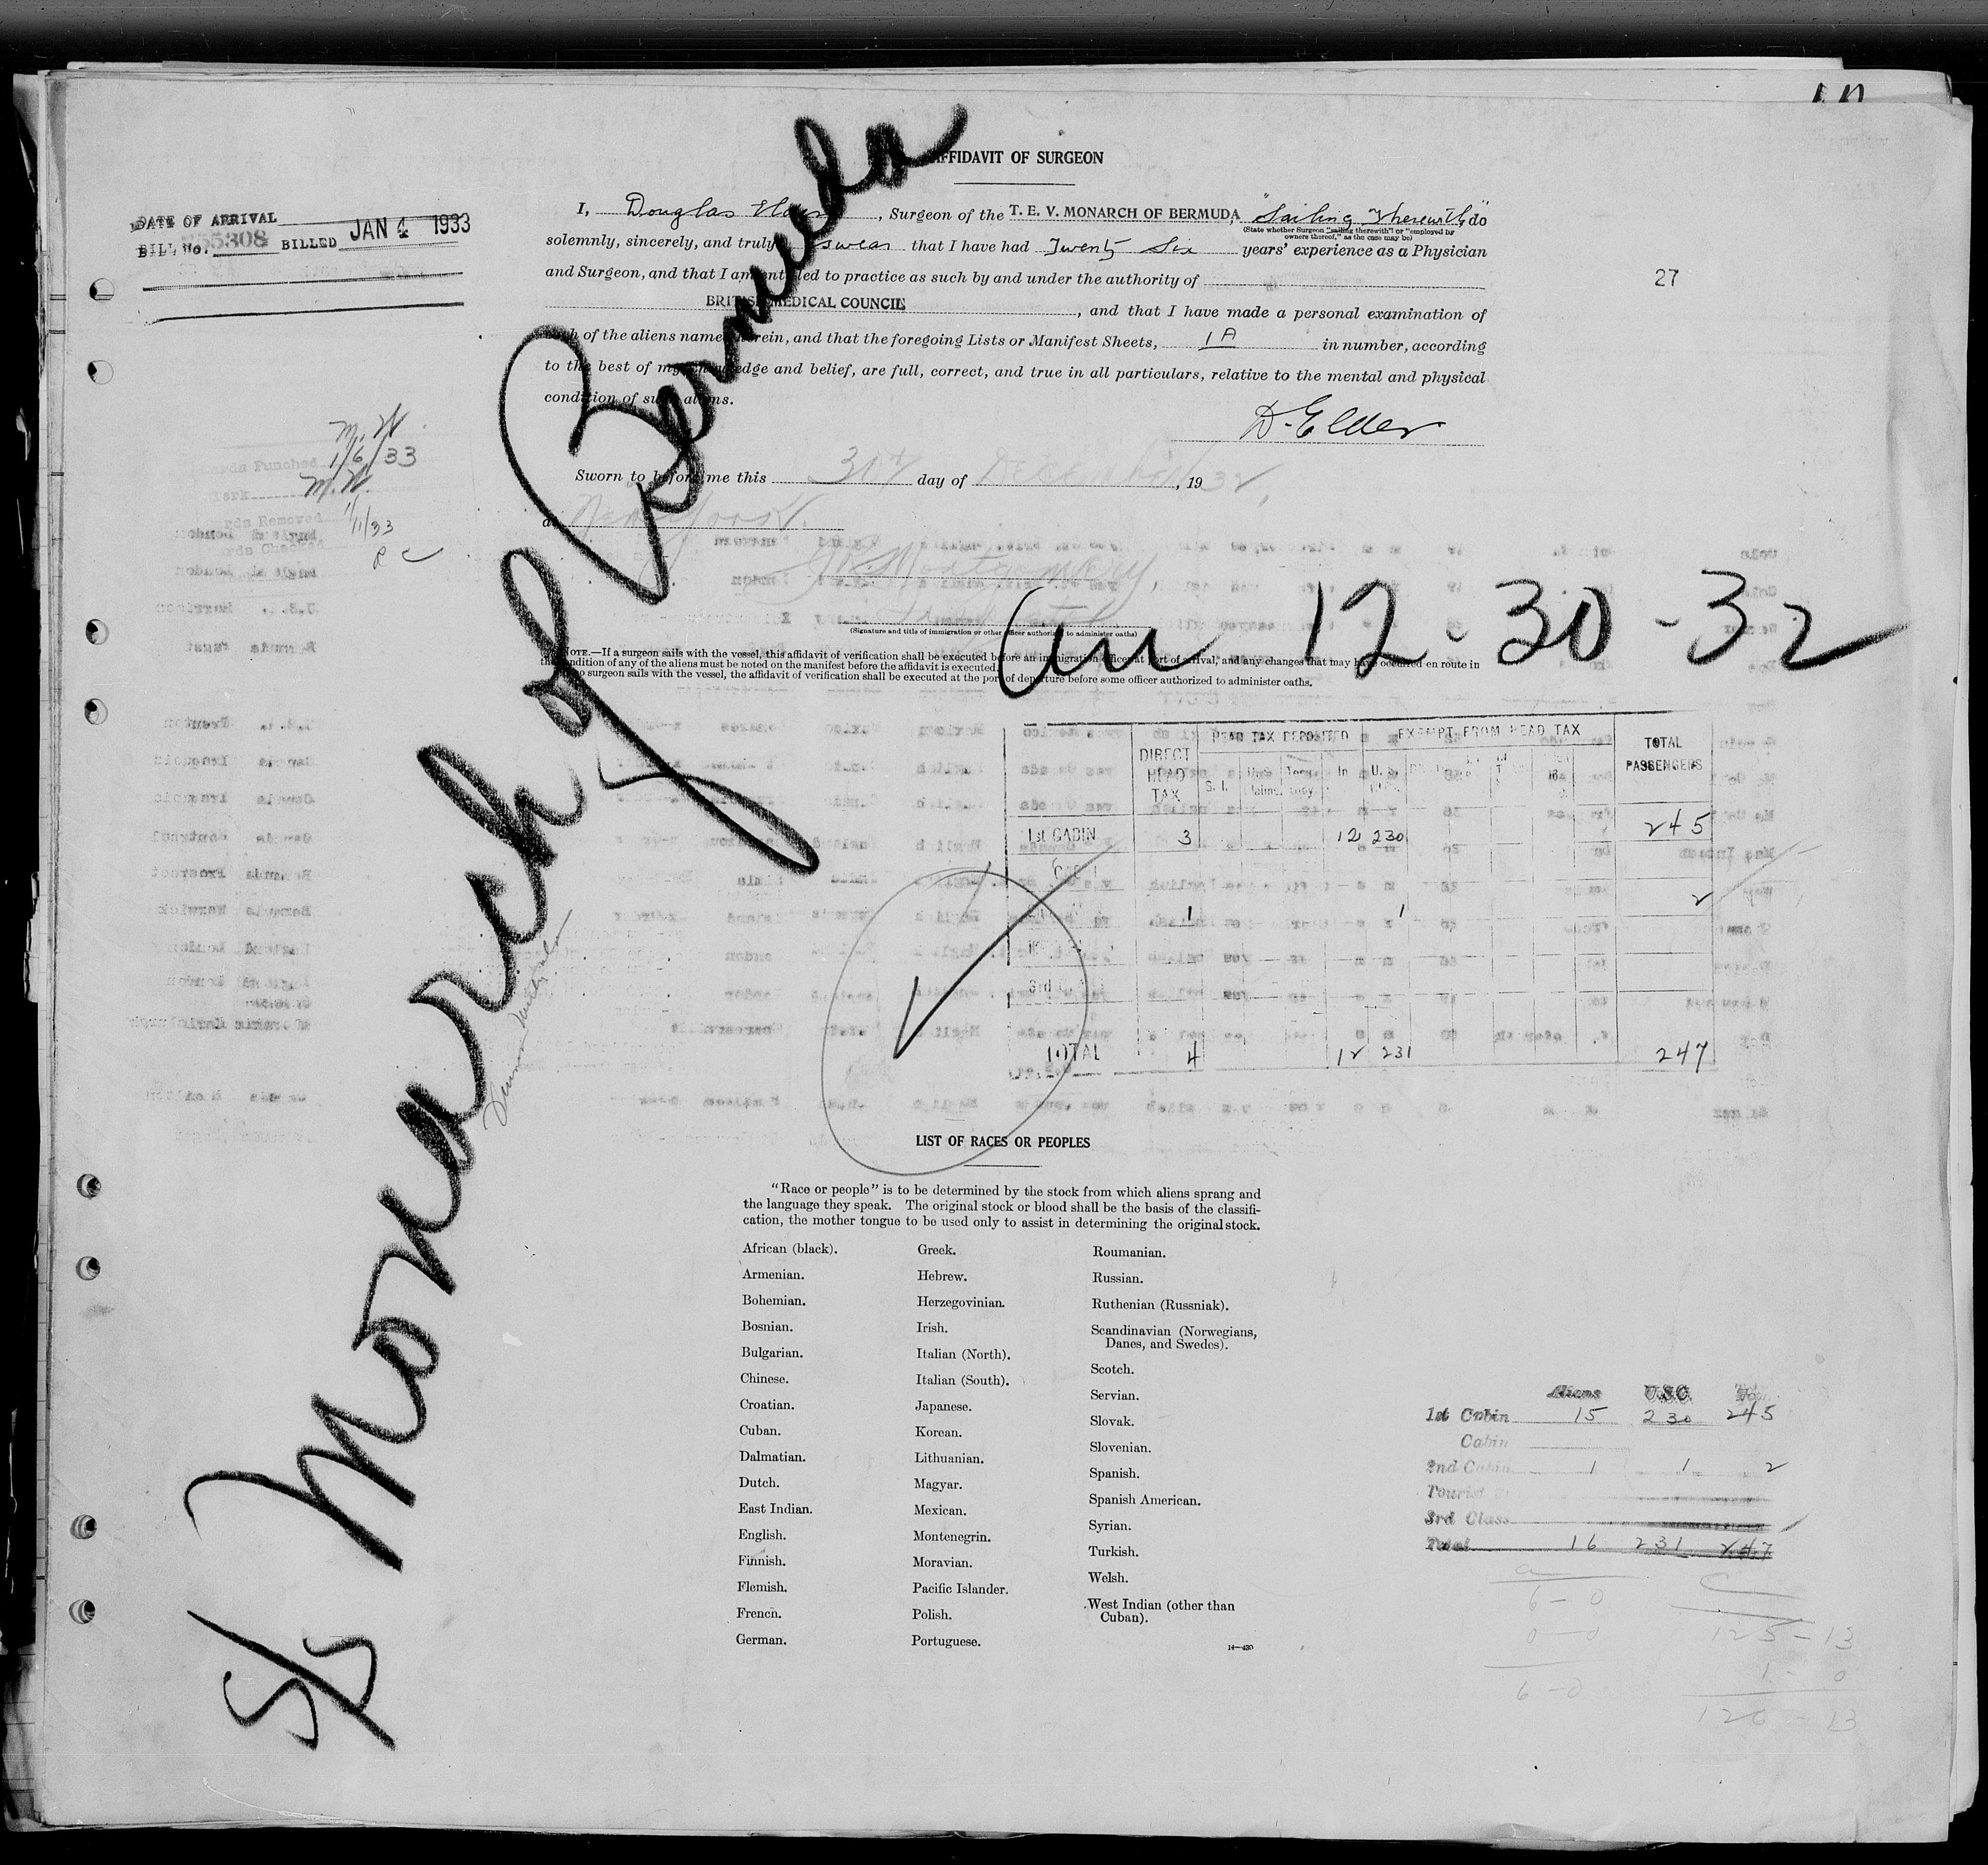 AFFIDAVIT OF SURGEON
DATE OF ARRIVAL
BILL No. 55308 BILLED JAN 4 1933
I, Douglas Elder, Surgeon of the T. E. V. MONARCH OF BERMUDA "Sailing Therewith," do
(State whether Surgeon "sailing therewith" or "employed by
owners thereof," as the case may be)
solemnly, sincerely, and truly swear that I have had Twenty Six years' experience as a Physician
and Surgeon, and that I am entitled to practice as such by and under the authority of
BRITISH MEDICAL COUNCIL, and that I have made a personal examination of
each of the aliens named herein, and that the foregoing Lists or Manifest Sheets, 1A in number, according
to the best of my knowledge and belief, are full, correct, and true in all particulars, relative to the mental and physical
condition of such aliens.
D. Elder
27
Sworn to before me this 30th day of December, 1932,
at New York.
(Signature and title of immigration or other officer authorized to administer oaths)
NOTE.—If a surgeon sails with the vessel, this affidavit of verification shall be executed before an immigration officer at port of arrival, and any changes that may have occurred en route in
the condition of any of the aliens must be noted on the manifest before the affidavit is executed.
If no surgeon sails with the vessel, the affidavit of verification shall be executed at the port of departure before some officer authorized to administer oaths.
M. W.
Cards Punched 1/6/33
Clerk M. W.
Cards Removed 1/11/33
Cards Checked
S/S Monarch of Bermuda
Arr 12-30-32
DIRECT HEAD TAX HEAD TAX DEPOSITED EXEMPT FROM HEAD TAX TOTAL PASSENGERS
1st CABIN 3 12 230 245
1 1 2
TOTAL 4 12 231 247
LIST OF RACES OR PEOPLES
"Race or people" is to be determined by the stock from which aliens sprang and
the language they speak. The original stock or blood shall be the basis of the classifi-
cation, the mother tongue to be used only to assist in determining the original stock.
African (black).
Armenian.
Bohemian.
Bosnian.
Bulgarian.
Chinese.
Croatian.
Cuban.
Dalmatian.
Dutch.
East Indian.
English.
Finnish.
Flemish.
French.
German.
Greek.
Hebrew.
Herzegovinian.
Irish.
Italian (North).
Italian (South).
Japanese.
Korean.
Lithuanian.
Magyar.
Mexican.
Montenegrin.
Moravian.
Pacific Islander.
Polish.
Portuguese.
Roumanian.
Russian.
Ruthenian (Russniak).
Scandinavian (Norwegians,
Danes, and Swedes).
Scotch.
Servian.
Slovak.
Slovenian.
Spanish.
Spanish American.
Syrian.
Turkish.
Welsh.
West Indian (other than
Cuban).
14—430
Aliens USC
1st Cabin 15 230 245
Cabin
2nd Cabin 1 1 2
Tourist
3rd Class
Total 16 231 247
6 - 0
0 - 0
6 - 0
125 - 13
1 - 0
126 - 13